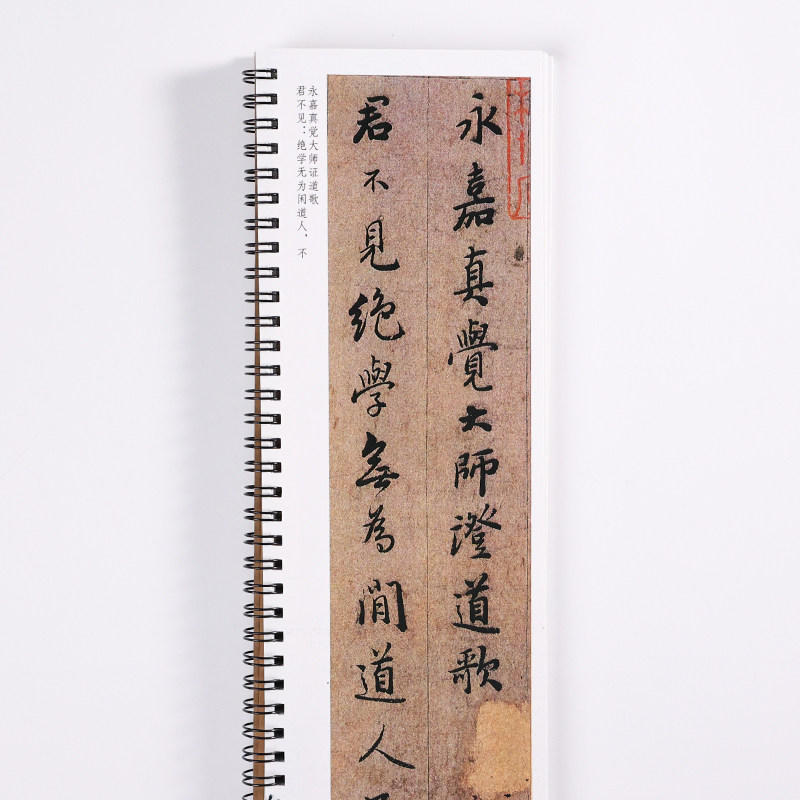 永嘉真覺大師證道歌
君不見絶學無為閒道人
永嘉真觉大师证道歌
君不见：绝学无为闲道人，不